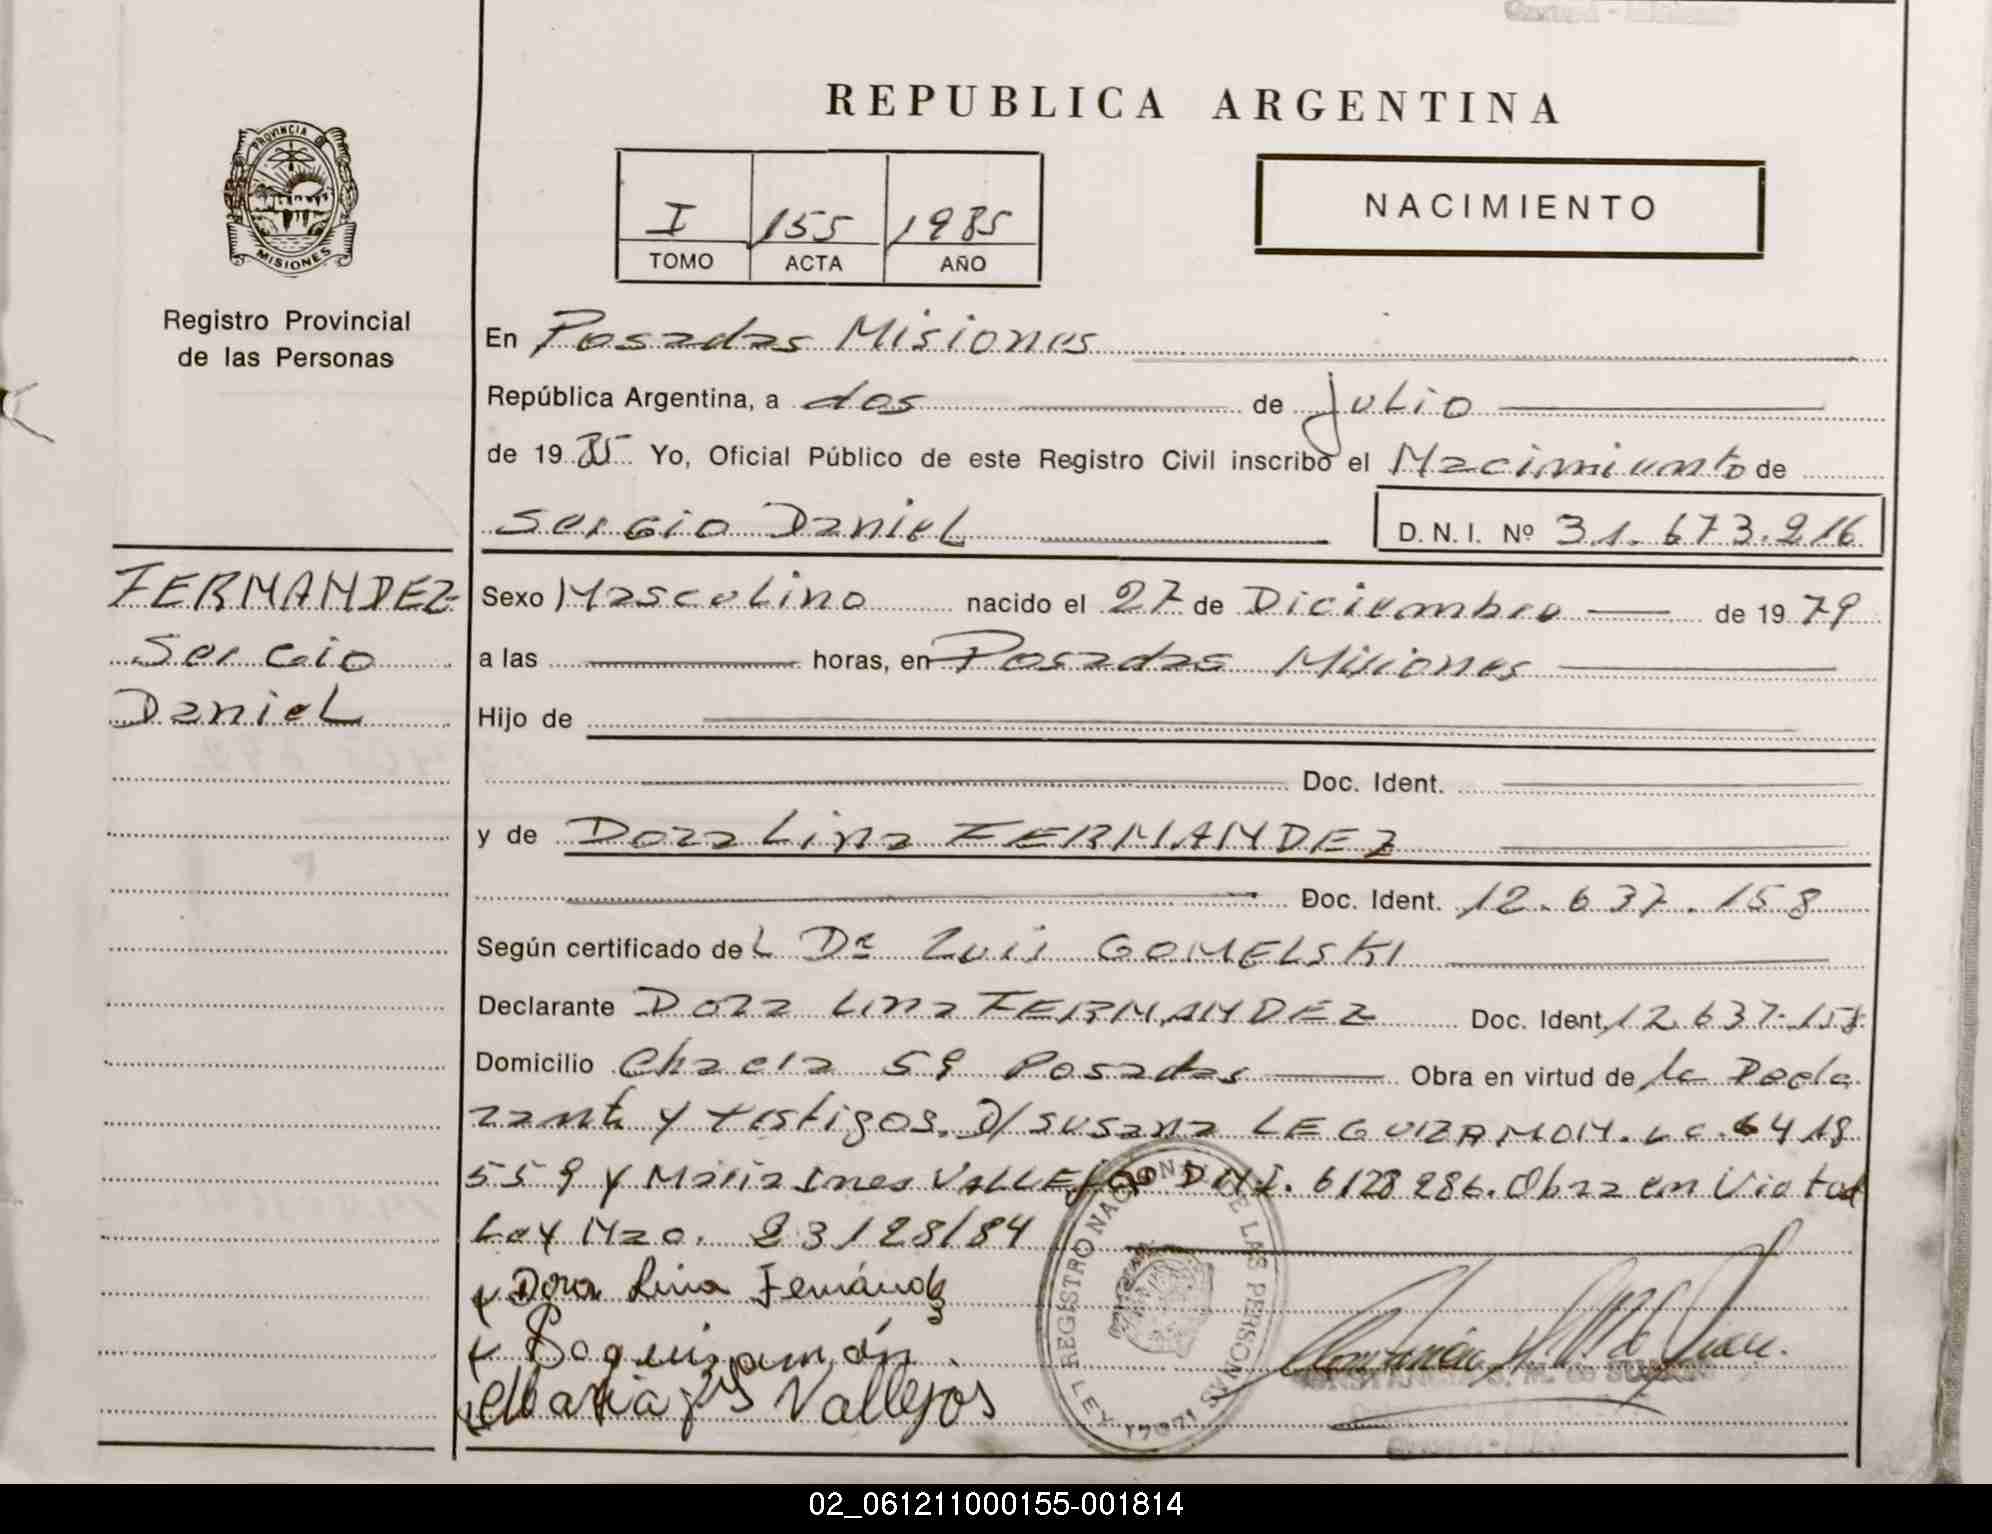 REPUBLICA ARGENTINA
PROVINCIA DE
MISIONES
Registro Provincial
de las Personas
I 155 1985
TOMO ACTA AÑO
NACIMIENTO
En Posadas Misiones
República Argentina, a dos de julio
de 1985 Yo, Oficial Público de este Registro Civil inscribo el Nacimiento de
Sergio Daniel D.N.I. Nº 31.673.216
FERNANDEZ
Sergio
Daniel
Sexo Masculino nacido el 27 de Diciembre de 1979
a las horas, en Posadas Misiones
Hijo de
Doc. Ident.
y de Dora Lina FERNANDEZ
Doc. Ident. 12.637.158
Según certificado del Dr Luis GOMELSKI
Declarante Dora Lina FERNANDEZ Doc. Ident. 12.637.158
Domicilio Chacra 59 Posadas Obra en virtud de la Decla
rante y testigos. D/ Susana LEGUIZAMON. L C. 6418
559 y Maria Ines VALLEJOS DNI. 6128286. Obra en Virtud
Ley Nro. 23128/84
Dora Lina Fernández
Leguizamón
Maria Ines Vallejos
REGISTRO NACIONAL DE LAS PERSONAS
LEY 17671
02_061211000155-001814